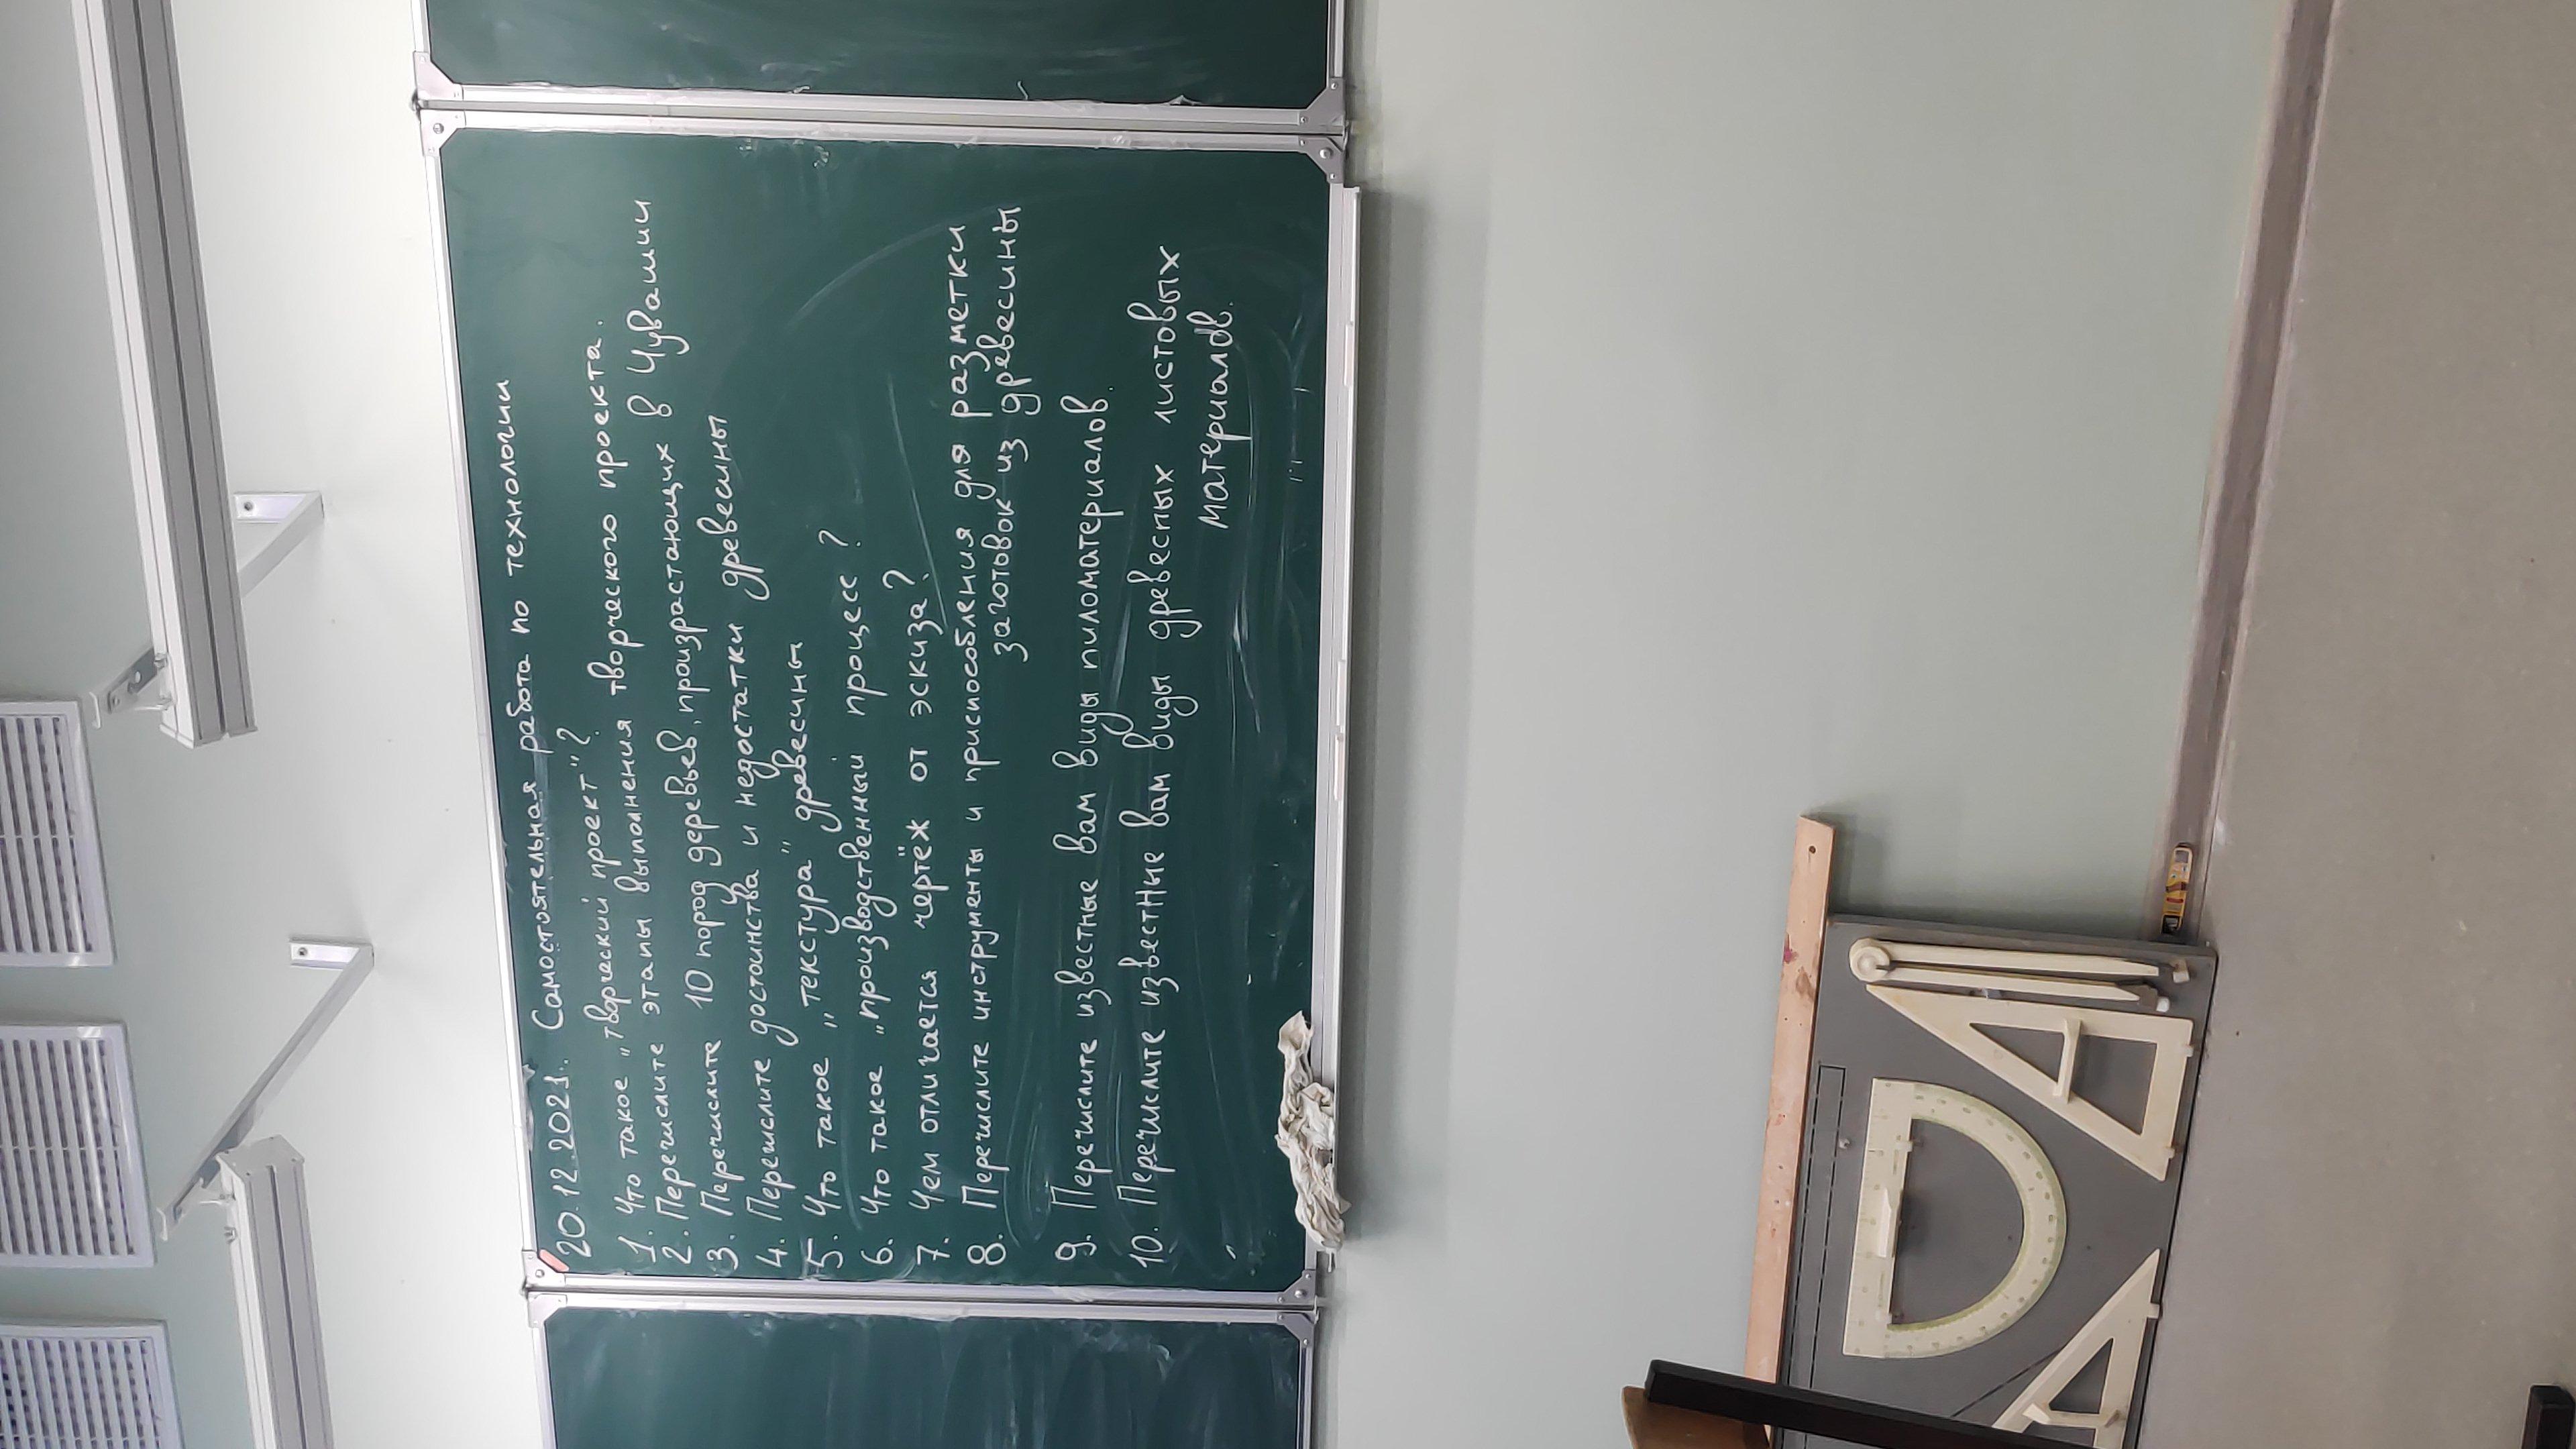 20.12.2021. Самостоятельная работа по технологии
1. Что такое „творческий проект"?
2. Перечислите этапы выполнения творческого проекта.
3. Перечислите 10 пород деревьев, произрастающих в Чувашии
4. Перечислите достоинства и недостатки древесины
5. Что такое „текстура" древесины
6. Что такое „производственный процесс?
7. Чем отличается чертёж от эскиза?
8. Перечислите инструменты и приспособления для разметки
заготовок из древесины
9. Перечислите известные вам виды пиломатериалов.
10. Перечислите известные вам виды древесных листовых
материалов.